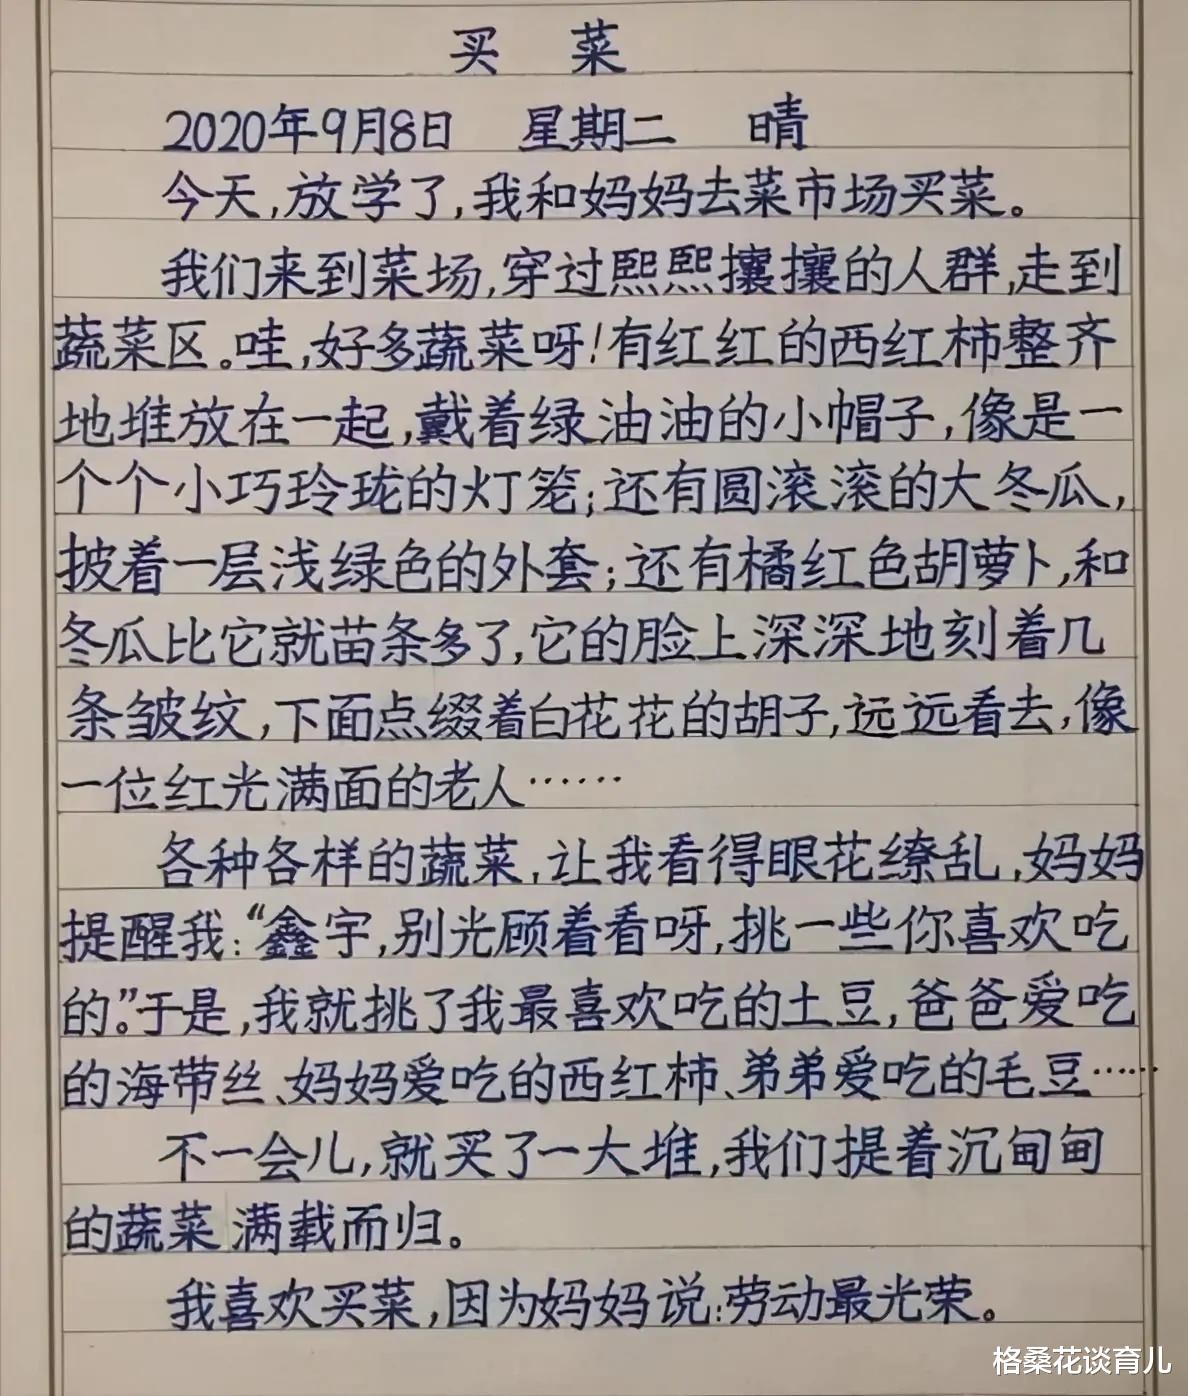 买 菜
2020年9月8日 星期二 晴
今天,放学了,我和妈妈去菜市场买菜。
我们来到菜场,穿过熙熙攘攘的人群,走到
蔬菜区。哇,好多蔬菜呀!有红红的西红柿整齐
地堆放在一起,戴着绿油油的小帽子,像是一
个个小巧玲珑的灯笼;还有圆滚滚的大冬瓜,
披着一层浅绿色的外套;还有橘红色胡萝卜,和
冬瓜比它就苗条多了,它的脸上深深地刻着几
条皱纹,下面点缀着白花花的胡子,远远看去,像
一位红光满面的老人……
各种各样的蔬菜,让我看得眼花缭乱,妈妈
提醒我:“鑫宇,别光顾着看呀,挑一些你喜欢吃
的。”于是,我就挑了我最喜欢吃的土豆,爸爸爱吃
的海带丝、妈妈爱吃的西红柿、弟弟爱吃的毛豆……
不一会儿,就买了一大堆,我们提着沉甸甸
的蔬菜满载而归。
我喜欢买菜,因为妈妈说:劳动最光荣。
格桑花谈育儿